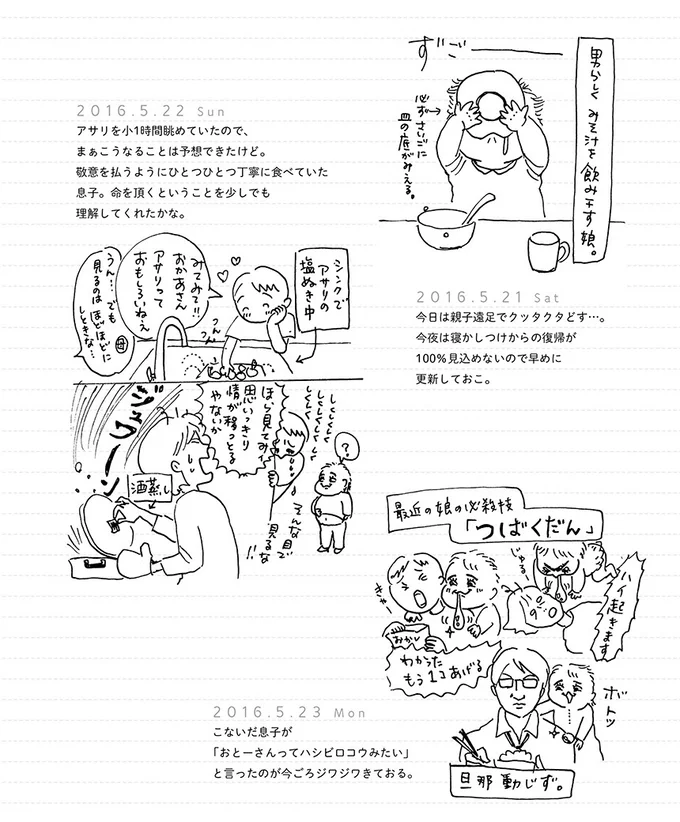 ずご
男らしく みそ汁を飲み干す娘。
必ず→
さいごに
皿の底が
みえる。
2016.5.21 Sat
今日は親子遠足でクッタクタどす…。
今夜は寝かしつけからの復帰が
100%見込めないので早めに
更新しておこ。
2016.5.22 Sun
アサリを小1時間眺めていたので、
まぁこうなることは予想できたけど。
敬意を払うようにひとつひとつ丁寧に食べていた
息子。命を頂くということを少しでも
理解してくれたかな。
シンクで
アサリの
塩ぬき中
みてみて!!
おかあさん
アサリって
おもしろいねえ
つんつん
うん…でも
見るのは ほどほどに
しときな…
母
ジュワーン
酒蒸し
ほら見てみィ
思いっきり
情が移っとる
やないか
しくしくしくしく
しくしくしく
?
そんな目で
見るな!!
最近の娘の必殺技
「つばくだん」
きゃー
おかし
わかった
もう1コあげる
じゅる
ハイ起きます
ボトッ
旦那動じず。
2016.5.23 Mon
こないだ息子が
「おとーさんってハシビロコウみたい」
と言ったのが今ごろジワジワきておる。